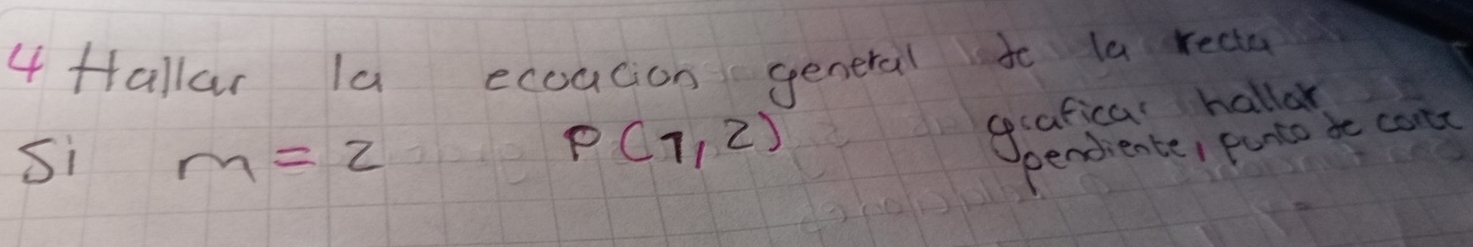 4 Hallar la ecoacion general de la recta
Si m = 2 P(1,2)
graficar hallar
pendiente, punto de corte